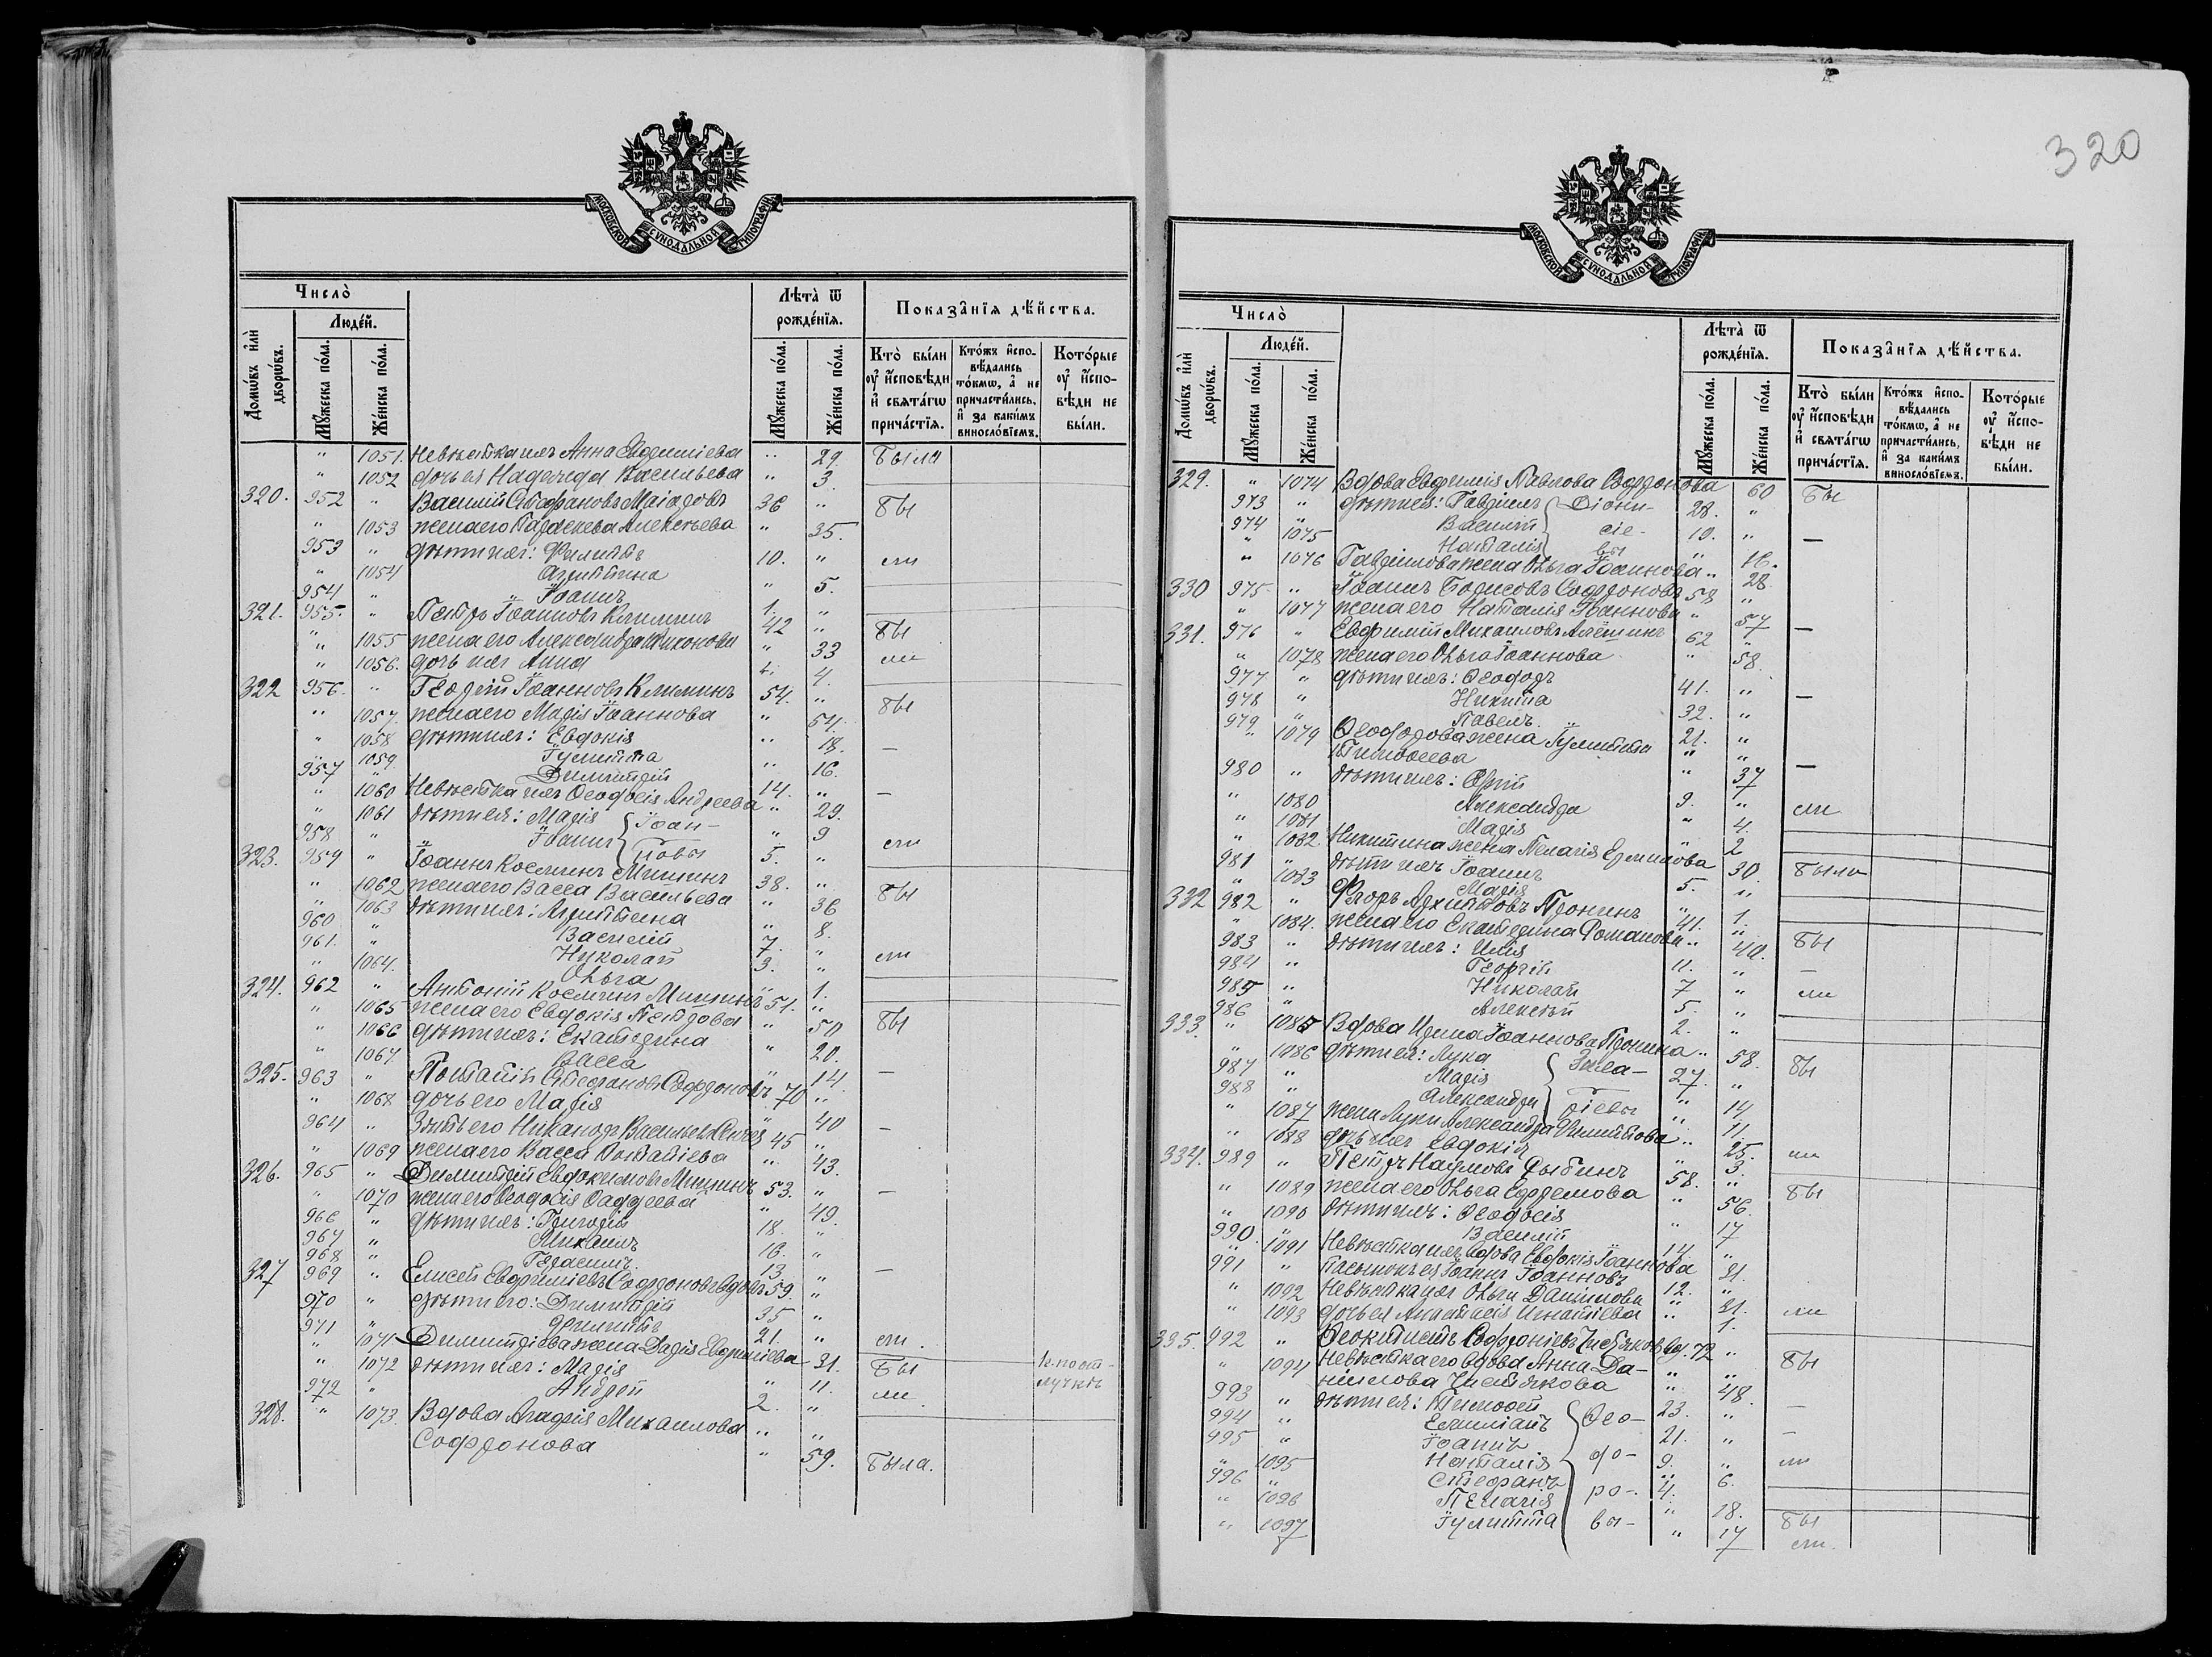 МОСКОВСКОЙ СѴНОДАЛЬНОЙ ТИПОГРАФІИ
Число̀
Домѡ́въ и҆лѝ дворѡ́въ.
Люде́й.
Мꙋ́жеска по́ла.
Же́нска по́ла.
Лѣта̀ ѿ рожде́нїѧ.
Мꙋ́жеска по́ла.
Же́нска по́ла.
Показа̑нїѧ дѣ́йства.
Кто̀ бы́ли оу҆ и҆́сповѣди и҆ свѧта́гѡ прича́стїѧ.
Кто́жъ и҆спо-вѣдались то́кмѡ, а҆ не причасти́лись, и҆ за каки́мъ винослові́емъ.
Кото́рые оу҆ и҆́спо-вѣди не бы́ли.
" 1051. Невѣстка ихъ Анна Евфиміева " 29. Были
" 1052 дочь ея Надежда Васильева " 3.
320. 952 " Василій Стефановъ 36 " бы
" 1053 жена его Параскева Алексѣева " 35.
953 " дѣти ихъ: Филиппъ 10. " ли
" 1054 Агриппина " 5.
954 " Іоаннъ 1. "
321. 955. " Петръ Іоанновъ Климинъ 42 " бы
" 1055 жена его Александра Никонова " 33
" 1056. дочь ихъ Анна " 4. ли
322 956. " Георгій Іоанновъ Климинъ 54. " бы
" 1057. жена его Марія Іоаннова " 54.
" 1058 дѣти ихъ: Евдокія " 18. —
" 1059 Іулитта " 16.
957 " Димитрій 14. " —
" 1060 Невѣстка ихъ Ѳеодосія Андреева " 29.
" 1061 дѣти ея: Марія } Іоан- " 9
958 " Іоаннъ } новы 5. " ли
323. 959 " Іоаннъ Косминъ Мишинъ 38. "
" 1062 жена его Васса Васильева " 36 бы
" 1063 дѣти ихъ: Агриппина " 8.
960 " Василій 7. "
961. " Николай 3. " ли
" 1064. Ольга " 1.
324. 962 " Антоній Косминъ Мишинъ 51. "
" 1065 жена его Евдокія Петрова " 50 бы
" 1066 дѣти ихъ: Екатерина " 20.
" 1067 Васса " 14 —
325. 963 " Потапій Стефановъ Софроновъ 70 "
" 1068 дочь его Марія " 40
964 " Зять его Никаноръ Васильевъ 45 " —
" 1069 жена его Васса Потапіева " 43.
326. 965 " Димитрій Евдокимовъ Мишинъ 53. "
" 1070 жена его Ѳеодосія Ѳаддеева " 49. —
966 " дѣти ихъ: Григорій 18. "
967 " Михаилъ 16. "
968 " Герасимъ 13. " —
327 969 " Елисей Евфиміевъ Софроновъ вдовъ 59. "
970 " дѣти его: Димитрій 35 "
971 " Филиппъ 21. " ли.
" 1071 Димитріева жена Дарія Евфиміева " 31. бы
" 1072 дѣти ихъ: Марія " 11.
972 " Андрей 2. " ли.
328. " 1073. Вдова Агафія Михаилова " "
Софронова " 59. Была.
320
МОСКОВСКОЙ СѴНОДАЛЬНОЙ ТИПОГРАФІИ
Число̀
Домѡ́въ и҆лѝ дворѡ́въ.
Люде́й.
Мꙋ́жеска по́ла.
Же́нска по́ла.
Лѣта̀ ѿ рожде́нїѧ.
Мꙋ́жеска по́ла.
Же́нска по́ла.
Показа̑нїѧ дѣ́йства.
Кто̀ бы́ли оу҆ и҆́сповѣди и҆ свѧта́гѡ прича́стїѧ.
Кто́жъ и҆спо-вѣдались то́кмѡ, а҆ не причасти́лись, и҆ за каки́мъ винослові́емъ.
Кото́рые оу҆ и҆́спо-вѣди не бы́ли.
329. " 1074 Вдова Евфимія Павлова Софронова 60 Бы
973 " дѣти ея: Гавріилъ } Діони- 28. "
974 " Василій } сіе- 19. "
" 1075 Наталія } вы " 16. —
" 1076 Гавріилова жена Ольга Іоаннова " 28
330 975 " Іоаннъ Борисовъ Софроновъ 58 "
" 1077 жена его Наталія Іоаннова " 57 —
331. 976 " Евфимій Михаиловъ Алёшинъ 62 "
" 1078 жена его Ольга Іоаннова " 58.
977 " дѣти ихъ: Ѳеодоръ 41. "
978 " Никита 32. " —
979 " Павелъ. 21. "
" 1079 Ѳеодорова жена Іулитта " "
Тимоѳеева " 37 —
980 " дѣти ихъ: Юрій 9. "
" 1080 Александра " 4. ли
" 1081 Марія " 2
" 1082 Никитина жена Пелагія Ермилова 30. были
981 " дѣти ихъ Іоаннъ 5. "
" 1083 Марія " 1.
332 982 " Ѳлоръ Архиповъ Пронинъ 41. "
" 1084. жена его Екатерина Романова " 40. бы
983 " дѣти ихъ: Илія 11. " —
984 " Георгій 7 "
985 " Николай 5. " ли
986 " Алексѣй 2. "
333. " 1085 Вдова Ирина Іоаннова Пронина " 58. бы
987 1086 дѣти ея: Лука 27. "
" Марія " 14
988 " Александра " 11.
" 1087 жена Луки Александра Филиппова " 25.
" 1088 дочь ихъ Евдокія " 3 ли
334. 989 " Петръ Наумовъ Рыбинъ 58. "
" 1089 жена его Ольга Ефремова " 56. бы
" 1090 дѣти ихъ: Ѳеодосія " 17
990. " Василій 14. "
" 1091 Невѣстка ихъ вдова Евдокія Іоаннова 31.
991 " Пасынокъ ея Іоаннъ Іоанновъ 12. "
" 1092 Невѣстка ихъ Ольга Даниилова " 31.
" 1093 дочь ея Анастасія Игнатіева " 1. ли
335. 992 " Ѳеоктистъ Софроніевъ Чистяковъ вд. 72 "
" 1094 Невѣстка его вдова Анна Да- " " бы
ниилова Чистякова " 48.
993 " дѣти ея: Тимоѳей } Ѳео- 23. " —
994 " Емиліанъ 21. "
995 " Іоаннъ } до- 9. " —
" 1095 Наталія " 6. ли
996 " Стефанъ } ро- 4. "
" 1096 Пелагія " 18. бы
" 1097 Іулитта } вы- " 17 ли.